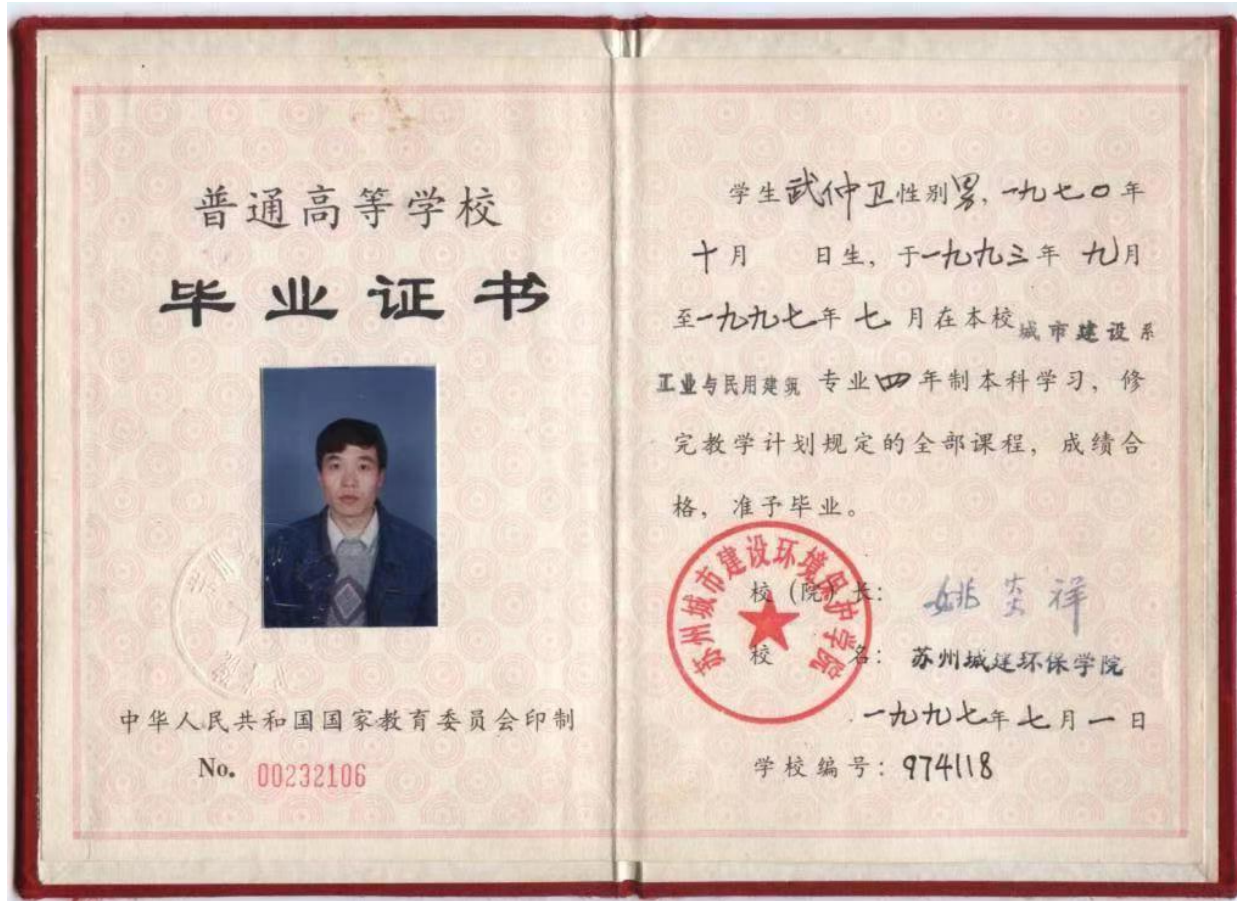 普通高等学校
毕业证书
中华人民共和国国家教育委员会印制
No. 00232106
学生武仲卫性别男，一九七〇年
十月 日生，于一九九三年九月
至一九九七年七月在本校城市建设系
工业与民用建筑专业四年制本科学习，修
完教学计划规定的全部课程，成绩合
格，准予毕业。
苏州城市建设环境保护学院
校（院）长：姚炎祥
校 名：苏州城建环保学院
一九九七年七月一日
学校编号：974118